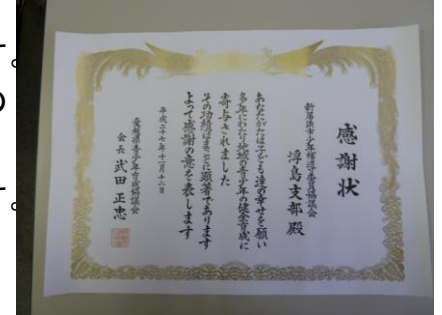 感謝状
新居浜市少年補導委員協議会
浮島支部殿
あなたがたは子ども達の幸せを願い
多年にわたり地域の青少年の健全育成に
寄与されました
その功績はまことに顕著であります
よって感謝の意を表します
平成二十七年十一月十二日
愛媛県青少年育成協議会
会長 武田正忠
す。
の
す。